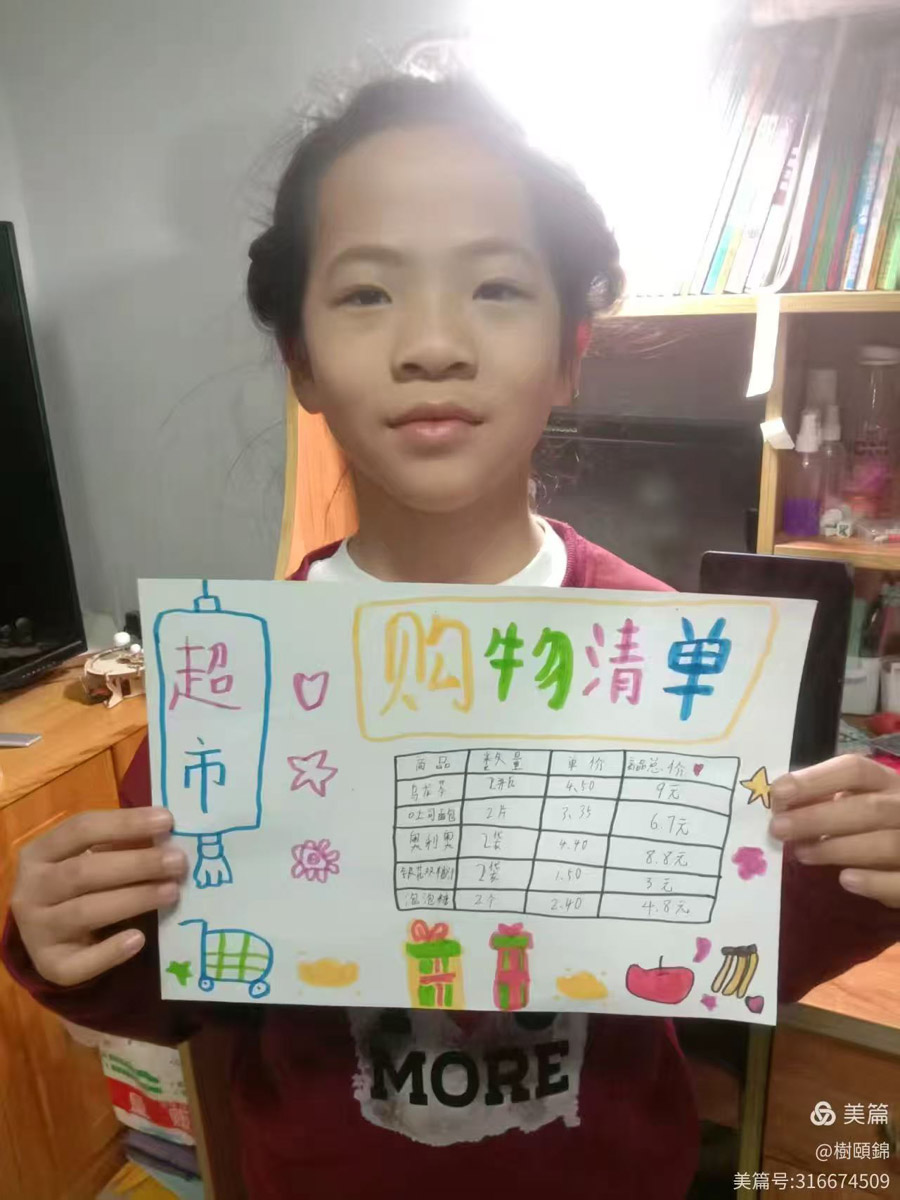 超市
购物清单
商品 数量 单价 商品总价
2瓶 4.50 9元
吐司面包 2片 3.35 6.7元
奥利奥 2袋 4.40 8.8元
2袋 1.50 3元
泡泡糖 2个 2.40 4.8元
MORE
美篇
@樹頤錦
美篇号:316674509